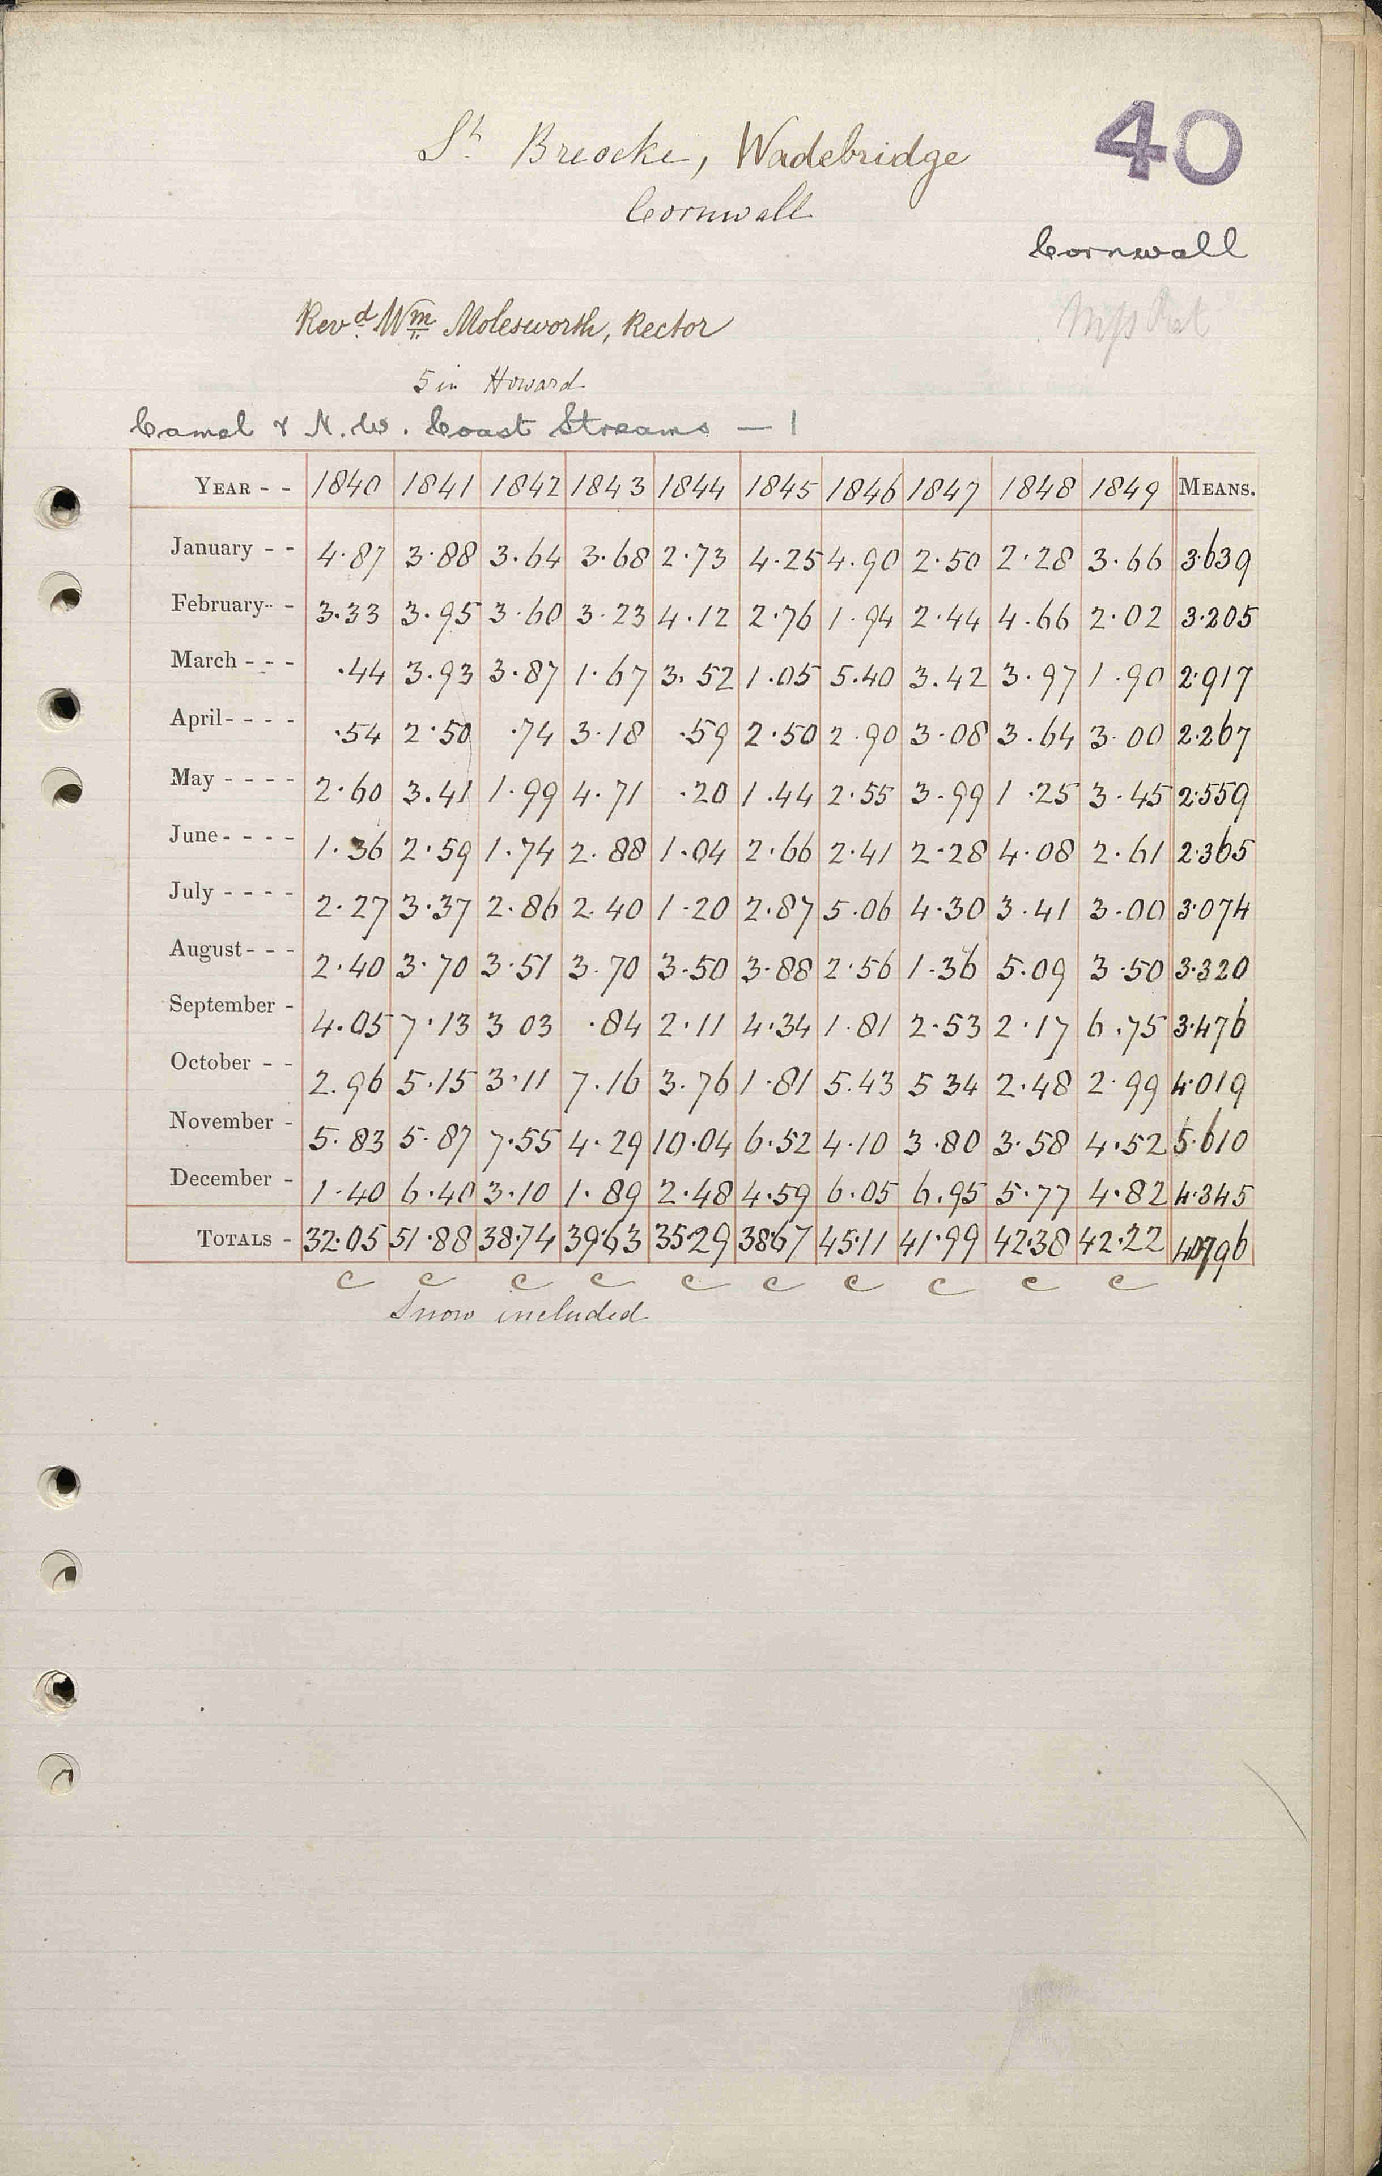 40
St. Breocke, Wadebridge
Cornwall
Cornwall
Revd. Wm Molesworth, Rector
5 in Howard
Camel & N.W. Coast Streams — 1
YEAR - - 1840 1841 1842 1843 1844 1845 1846 1847 1848 1849 MEANS.
January - - 4.87 3.88 3.64 3.68 2.73 4.25 4.90 2.50 2.28 3.66 3.639
February - - 3.33 3.95 3.60 3.23 4.12 2.76 1.94 2.44 4.66 2.02 3.205
March - - - .44 3.93 3.87 1.67 3.52 1.05 5.40 3.42 3.97 1.90 2.917
April - - - - .54 2.50 .74 3.18 .59 2.50 2.90 3.08 3.64 3.00 2.267
May - - - - 2.60 3.41 1.99 4.71 .20 1.44 2.55 3.99 1.25 3.45 2.559
June - - - - 1.36 2.59 1.74 2.88 1.04 2.66 2.41 2.28 4.08 2.61 2.365
July - - - - 2.27 3.37 2.86 2.40 1.20 2.87 5.06 4.30 3.41 3.00 3.074
August - - - 2.40 3.70 3.51 3.70 3.50 3.88 2.56 1.36 5.09 3.50 3.320
September - 4.05 7.13 3 03 .84 2.11 4.34 1.81 2.53 2.17 6.75 3.476
October - - 2.96 5.15 3.11 7.16 3.76 1.81 5.43 5 34 2.48 2.99 4.019
November - 5.83 5.87 7.55 4.29 10.04 6.52 4.10 3.80 3.58 4.52 5.610
December - 1.40 6.40 3.10 1.89 2.48 4.59 6.05 6.95 5.77 4.82 4.345
TOTALS - 32.05 51.88 38.74 39.63 35.29 38.67 45.11 41.99 42.38 42.22 40.796
c c c c c c c c c c
Snow included